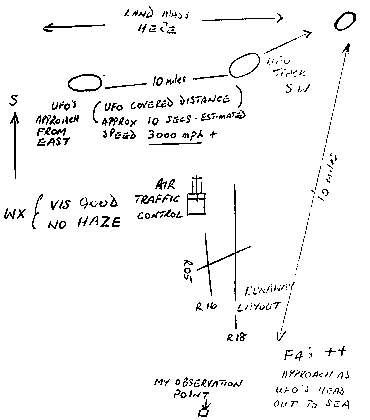 LAND MASS
HERE
10 miles
UFO
TRACK
SW
S
UFO'S
APPROACH
FROM
EAST
( UFO COVERED DISTANCE )
APPROX 10 SECS - ESTIMATED
SPEED 3000 mph +
10 miles
WX { VIS GOOD
NO HAZE
AIR
TRAFFIC
CONTROL
R05
R16
RUNAWAY
LAYOUT
R18
F4's ++
APPROACH AS
UFO'S HEAD
OUT TO SEA
MY OBSERVATION
POINT